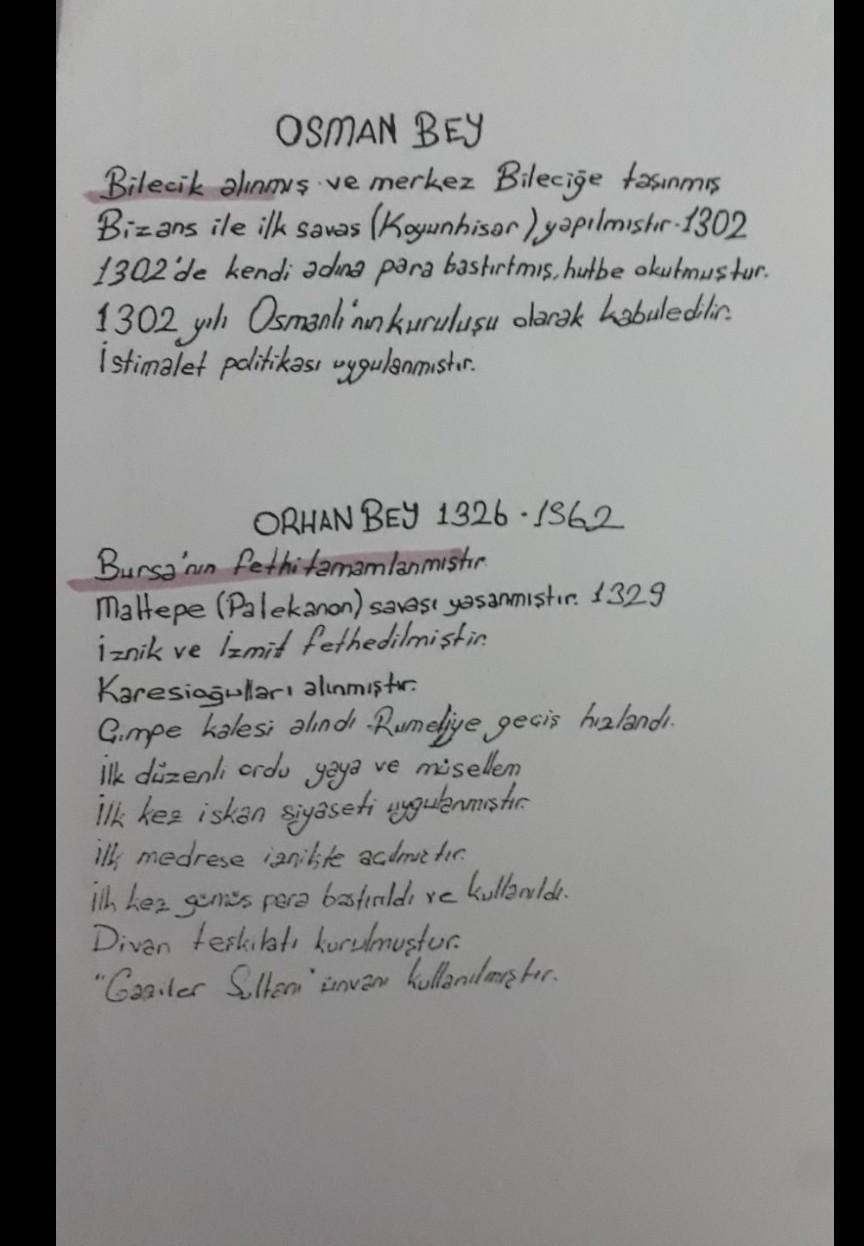 OSMAN BEY
Bilecik alınmış ve merkez Bileciğe taşınmış
Bizans ile ilk savas (Koyunhisar) yapılmıstır. 1302
1302'de kendi adına para bastırtmış, hutbe okutmuştur.
1302 yılı Osmanlı'nın kuruluşu olarak kabuledilir.
İstimalet politikası uygulanmıstır.
ORHAN BEY 1326 - 1362
Bursa'nın fethi tamamlanmıştır
Maltepe (Palekanon) savaşı yaşanmıştır. 1329
İznik ve İzmit fethedilmiştir.
Karesioğulları alınmıştır.
Çimpe kalesi alındı. Rumeliye geçiş hızlandı.
İlk düzenli ordu yaya ve müsellem
İlk kez iskan siyaseti uygulanmıştır
İlk medrese iznikte açılmıştır.
İlk kez gümüş para bastırıldı ve kullanıldı.
Divan teşkilatı kurulmuştur.
"Gaziler Sultanı" ünvanı kullanılmıştır.